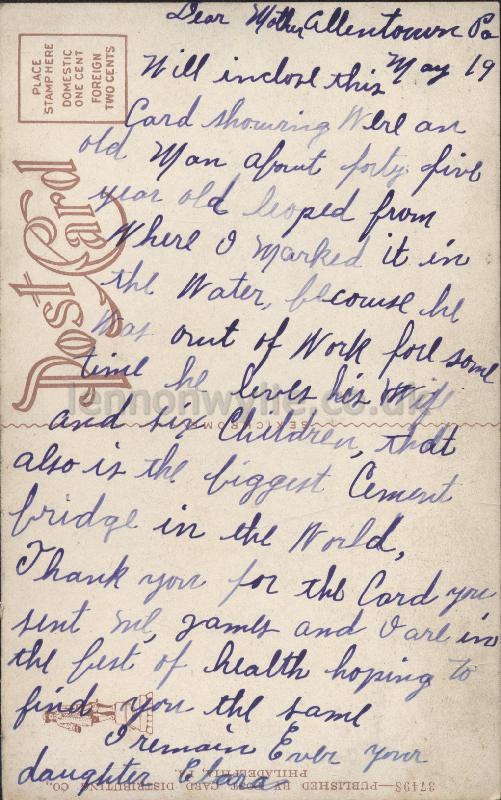 Dear Mother Allentown Pa
May 19
Will inclose this
Card showing Were an
old Man about forty five
year old leoped from
Where I Marked it in
the Water, becouse he
Was out of Work fore some
time he leves his Wife
and six Children, that
also is the biggest Cement
bridge in the World,
Thank you for the Card you
sent me, James and I are in
the best of health hoping to
find you the same
I remain Ever your
daughter Clara
PLACE
STAMP HERE
DOMESTIC
ONE CENT
FOREIGN
TWO CENTS
Post Card
lennonwylie.co.uk
37498—PUBLISHED BY POST CARD DISTRIBUTING CO.
PHILADELPHIA, PA.